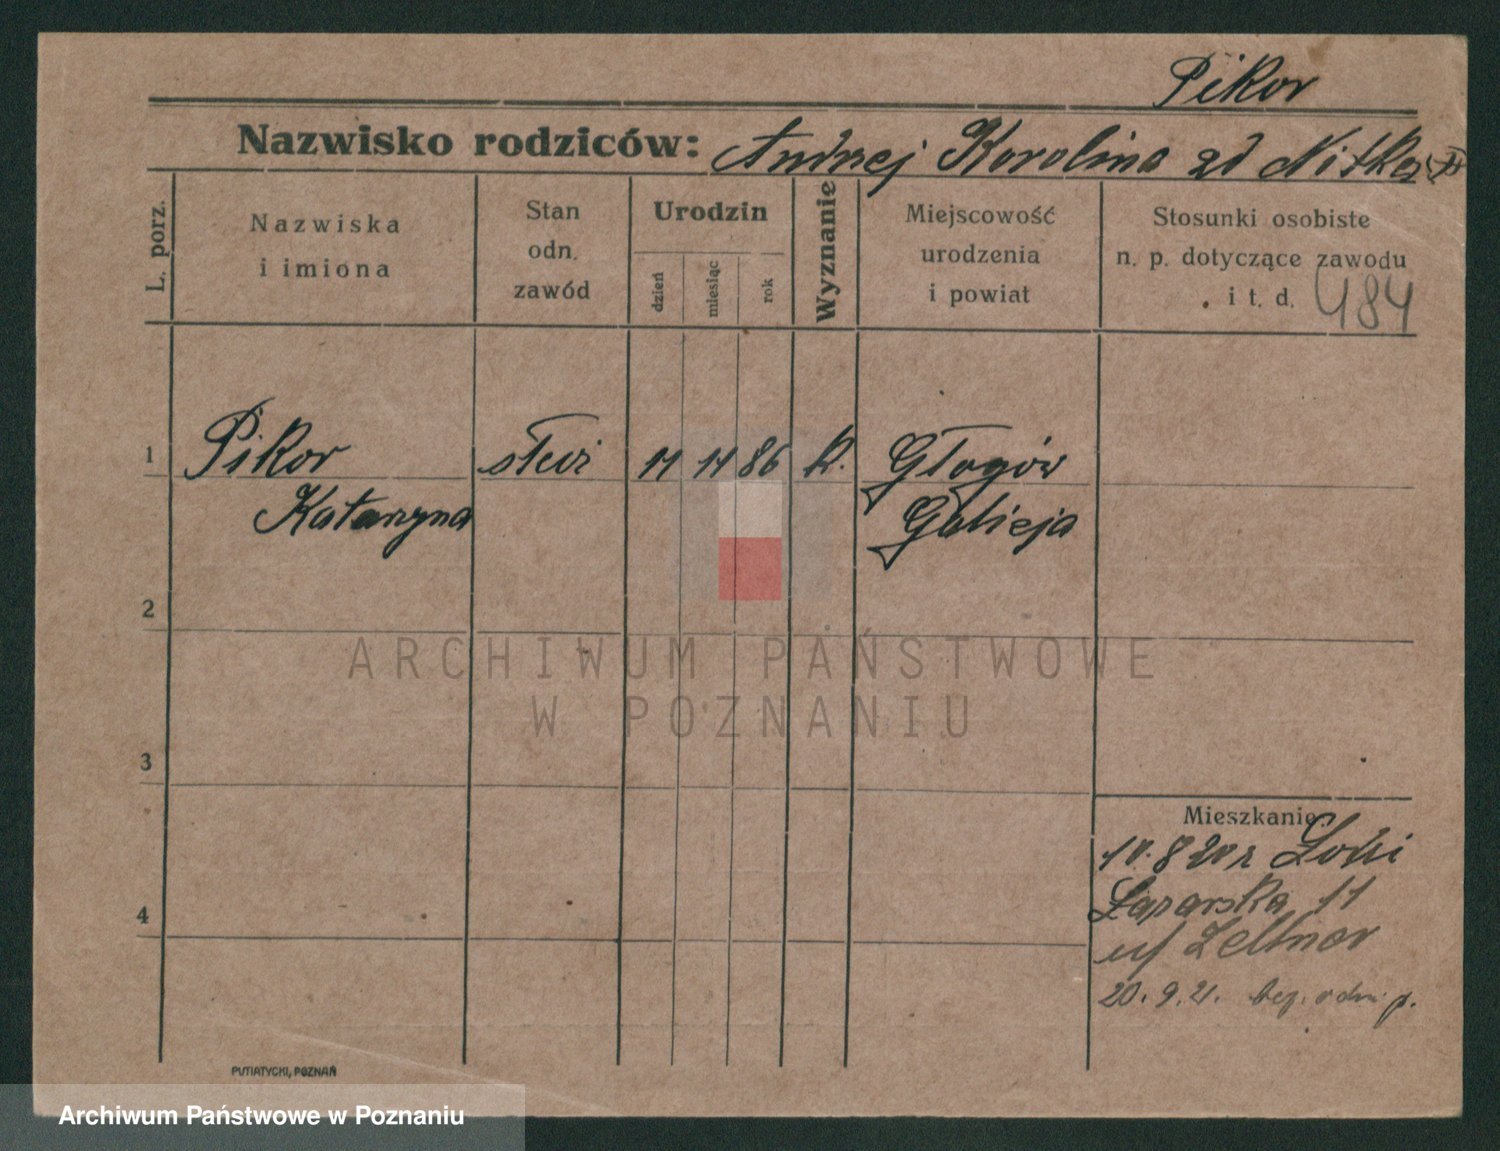 Pikor
Nazwisko rodziców: Andrzej Karolina zd Nitka
L. porz.
Nazwiska i imiona
Stan odn. zawód
Urodzin
dzień
miesiąc
rok
Wyznanie
Miejscowość urodzenia i powiat
Stosunki osobiste
n. p. dotyczące zawodu
i t. d. 484
1 Pikor 86 k. Głogów
Katarzyna Galicja
2
3
4
Mieszkanie:
Łazarska 11
20. 9. 21.
PUTIATYCKI, POZNAŃ
ARCHIWUM PAŃSTWOWE
W POZNANIU
Archiwum Państwowe w Poznaniu